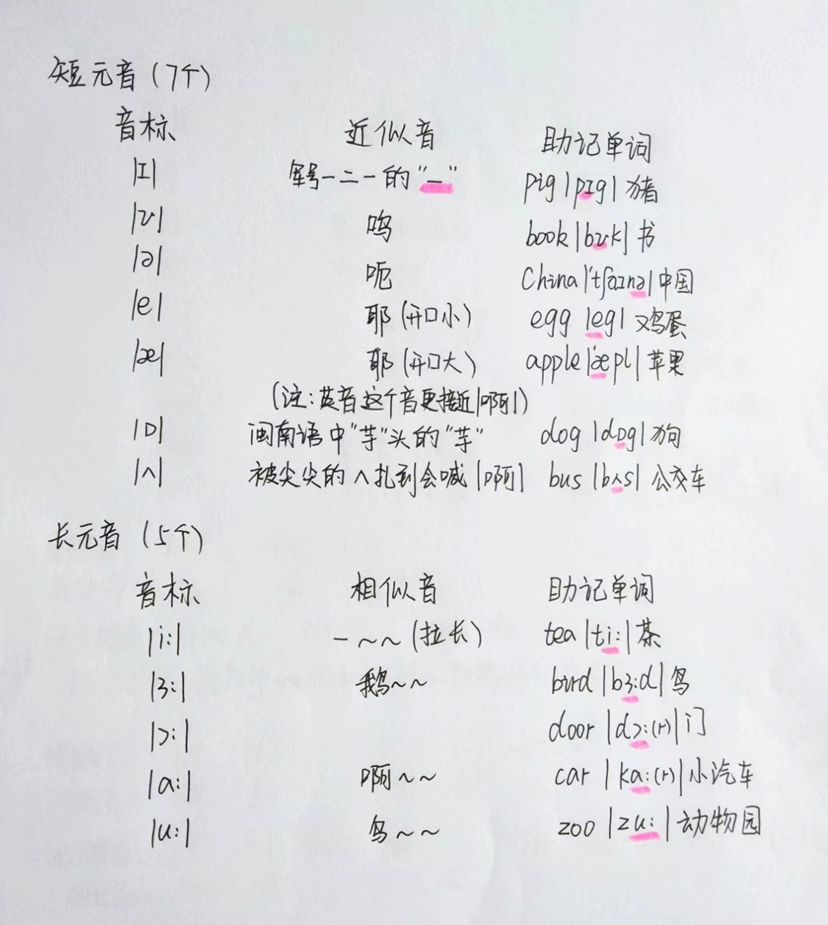 短元音（7个）
音标 近似音 助记单词
|ɪ| 军号一二一的"一" pig |pɪg| 猪
|ʊ| 呜 book |bʊk| 书
|ə| 呃 China |'tʃaɪnə| 中国
|e| 耶（开口小） egg |eg| 鸡蛋
|æ| 耶（开口大） apple |'æpl| 苹果
（注：英音这个音更接近|啊|）
|ɒ| 闽南语中"芋"头的"芋" dog |dɒg| 狗
|ʌ| 被尖尖的∧扎到会喊|啊| bus |bʌs| 公交车
长元音（5个）
音标 相似音 助记单词
|i:| 一~~（拉长） tea |ti:| 茶
|ɜ:| 鹅~~ bird |bɜ:d| 鸟
|ɔ:| door |dɔ:(r)| 门
|a:| 啊~~ car |ka:(r)| 小汽车
|u:| 乌~~ zoo |zu:| 动物园